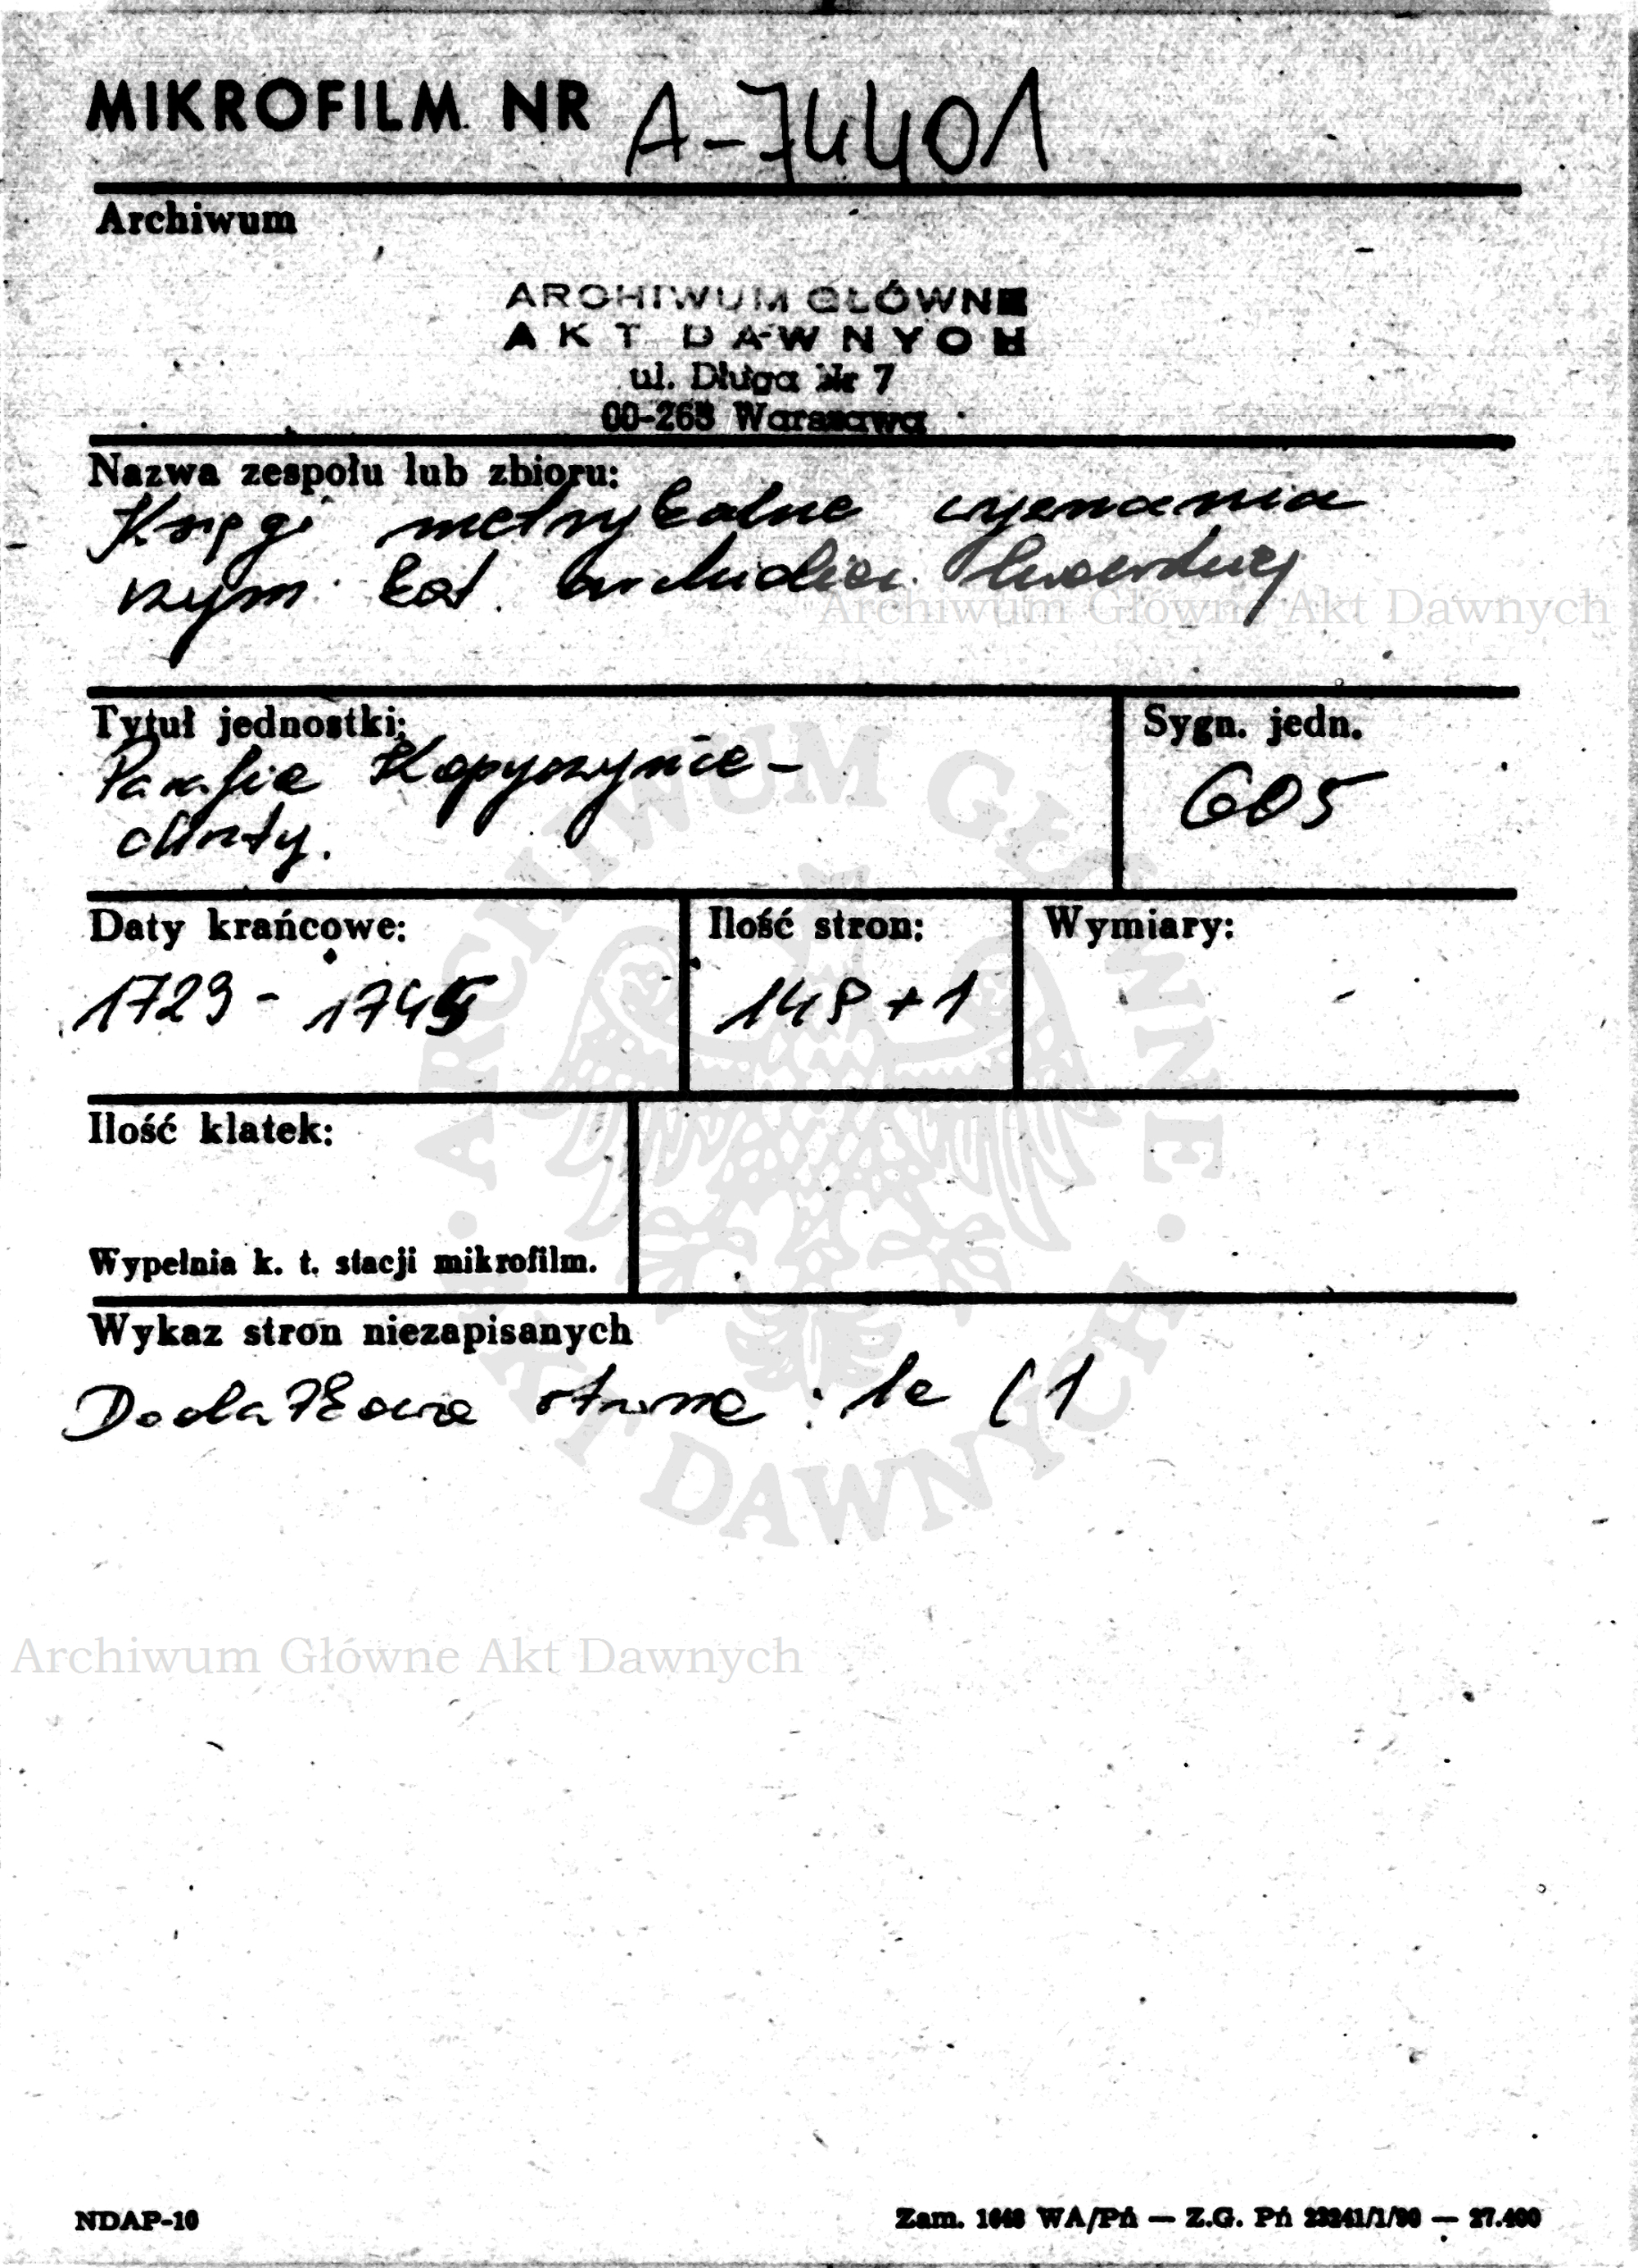 MIKROFILM NR A-74401
Archiwum
ARCHIWUM GŁÓWNE
AKT DAWNYCH
ul. Długa Nr 7
00-263 Warszawa
Nazwa zespołu lub zbioru:
Księgi metrykalne wyznania
rzym. kat. archidiec. lwowskiej
Archiwum Główne Akt Dawnych
Tytuł jednostki:
Parafia Kopyczyńce -
chrzty.
Sygn. jedn.
605
Daty krańcowe:
1729 - 1745
Ilość stron:
148 + 1
Wymiary:
Ilość klatek:
Wypełnia k. t. stacji mikrofilm.
Wykaz stron niezapisanych
Dodatkowe strona : 1a ( 1
ARCHIWUM GŁÓWNE AKT DAWNYCH
Archiwum Główne Akt Dawnych
NDAP-10
Zam. WA/Pń — Z.G. Pń 23241/1/90 — 27.400